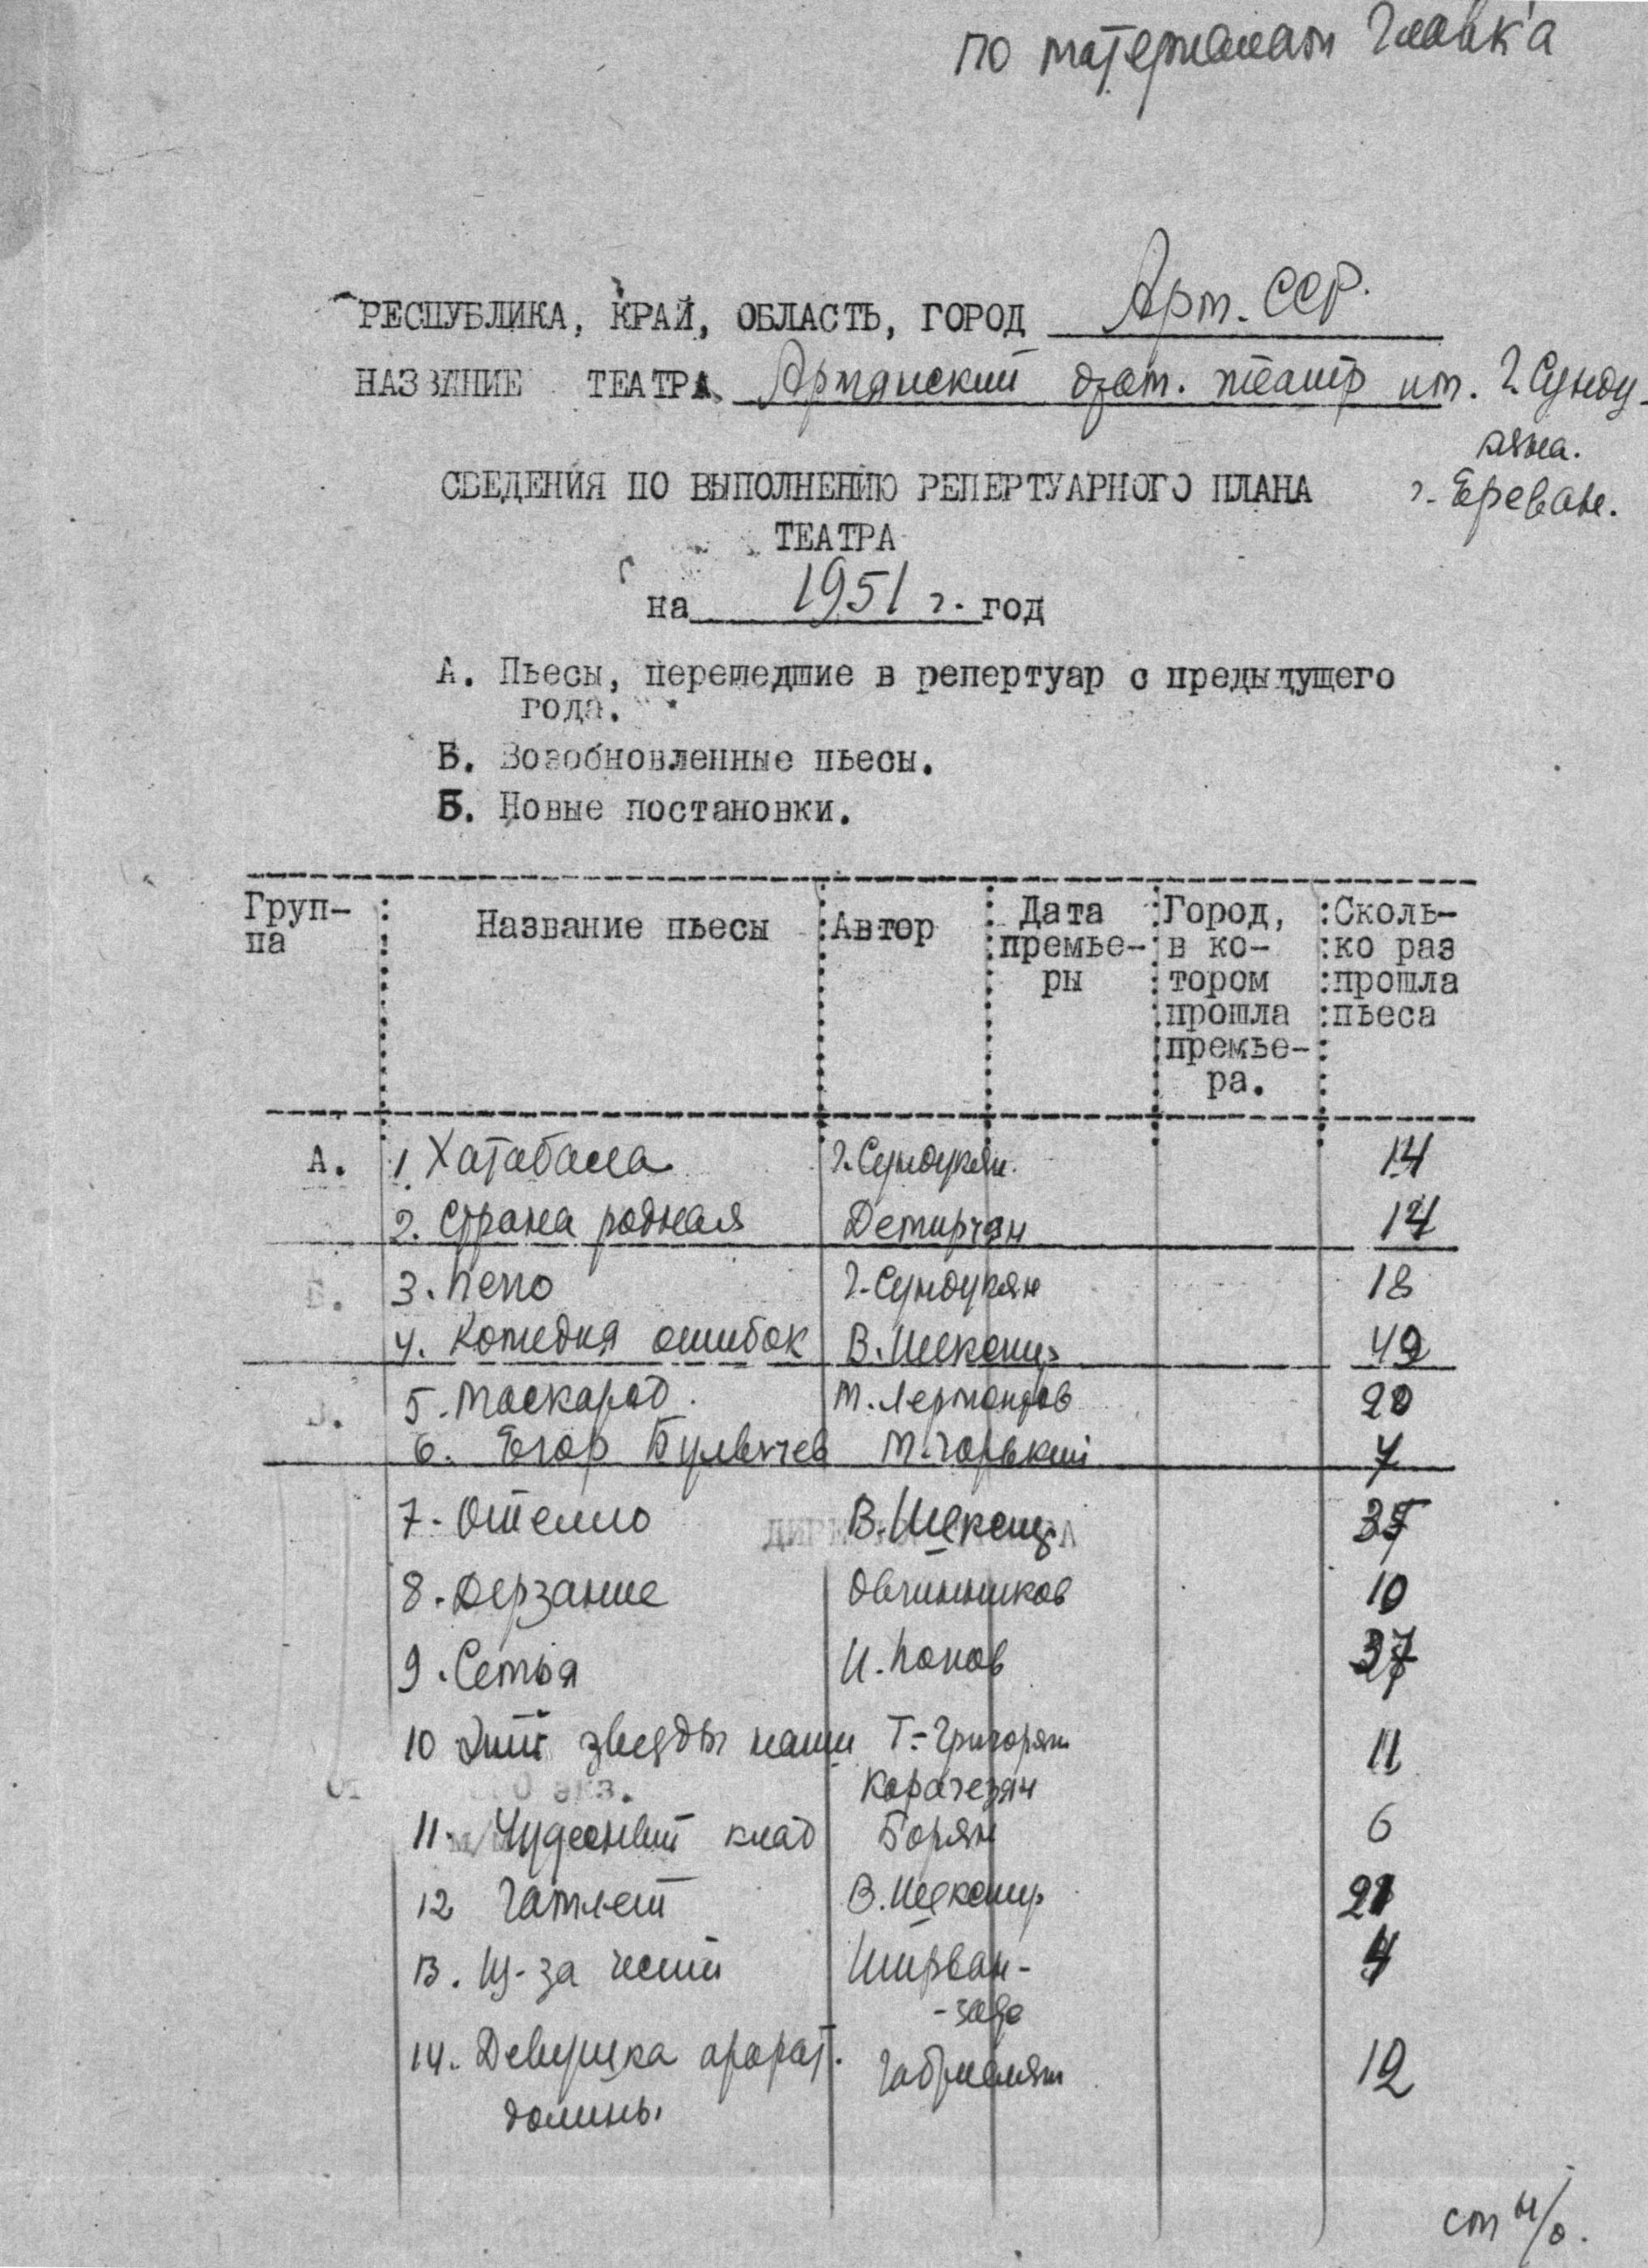 по материалам Главк'а
РЕСПУБЛИКА, КРАЙ, ОБЛАСТЬ, ГОРОД Арм. ССР.
НАЗВАНИЕ ТЕАТРА Армянский драм. театр им. Г. Сунду-
кяна.
г. Ереван.
СВЕДЕНИЯ ПО ВЫПОЛНЕНИЮ РЕПЕРТУАРНОГО ПЛАНА
ТЕАТРА
на 1951 г. год
А. Пьесы, перешедшие в репертуар с предыдущего
года.
Б. Возобновленные пьесы.
В. Новые постановки.
Груп- : Название пьесы : Автор : Дата : Город, : Сколь-
па : премье- : в ко- : ко раз
ры : тором : прошла
прошла : пьеса
премье- :
ра.
А. 1. Хатабала Г. Сундукян. 14
2. Страна родная Демирчян 14
Б. 3. Пепо Г. Сундукян 18
4. Комедия ошибок В. Шекспир 49
В. 5. Маскарад. М. Лермонтов 20
6. Егор Булычев М. Горький 7
7. Отелло В. Шекспир
8. Дерзание Овчинников 10
9. Семья И. Попов 37
10 Эти звезды наши Т.-Григорян 11
Карагезян
11. Чудесный клад Борян 6
12 Гамлет В. Шекспир 21
13. Из-за чести Ширван- 4
-заде
14. Девушка арарат. Габриелян 12
долины
см н/о.